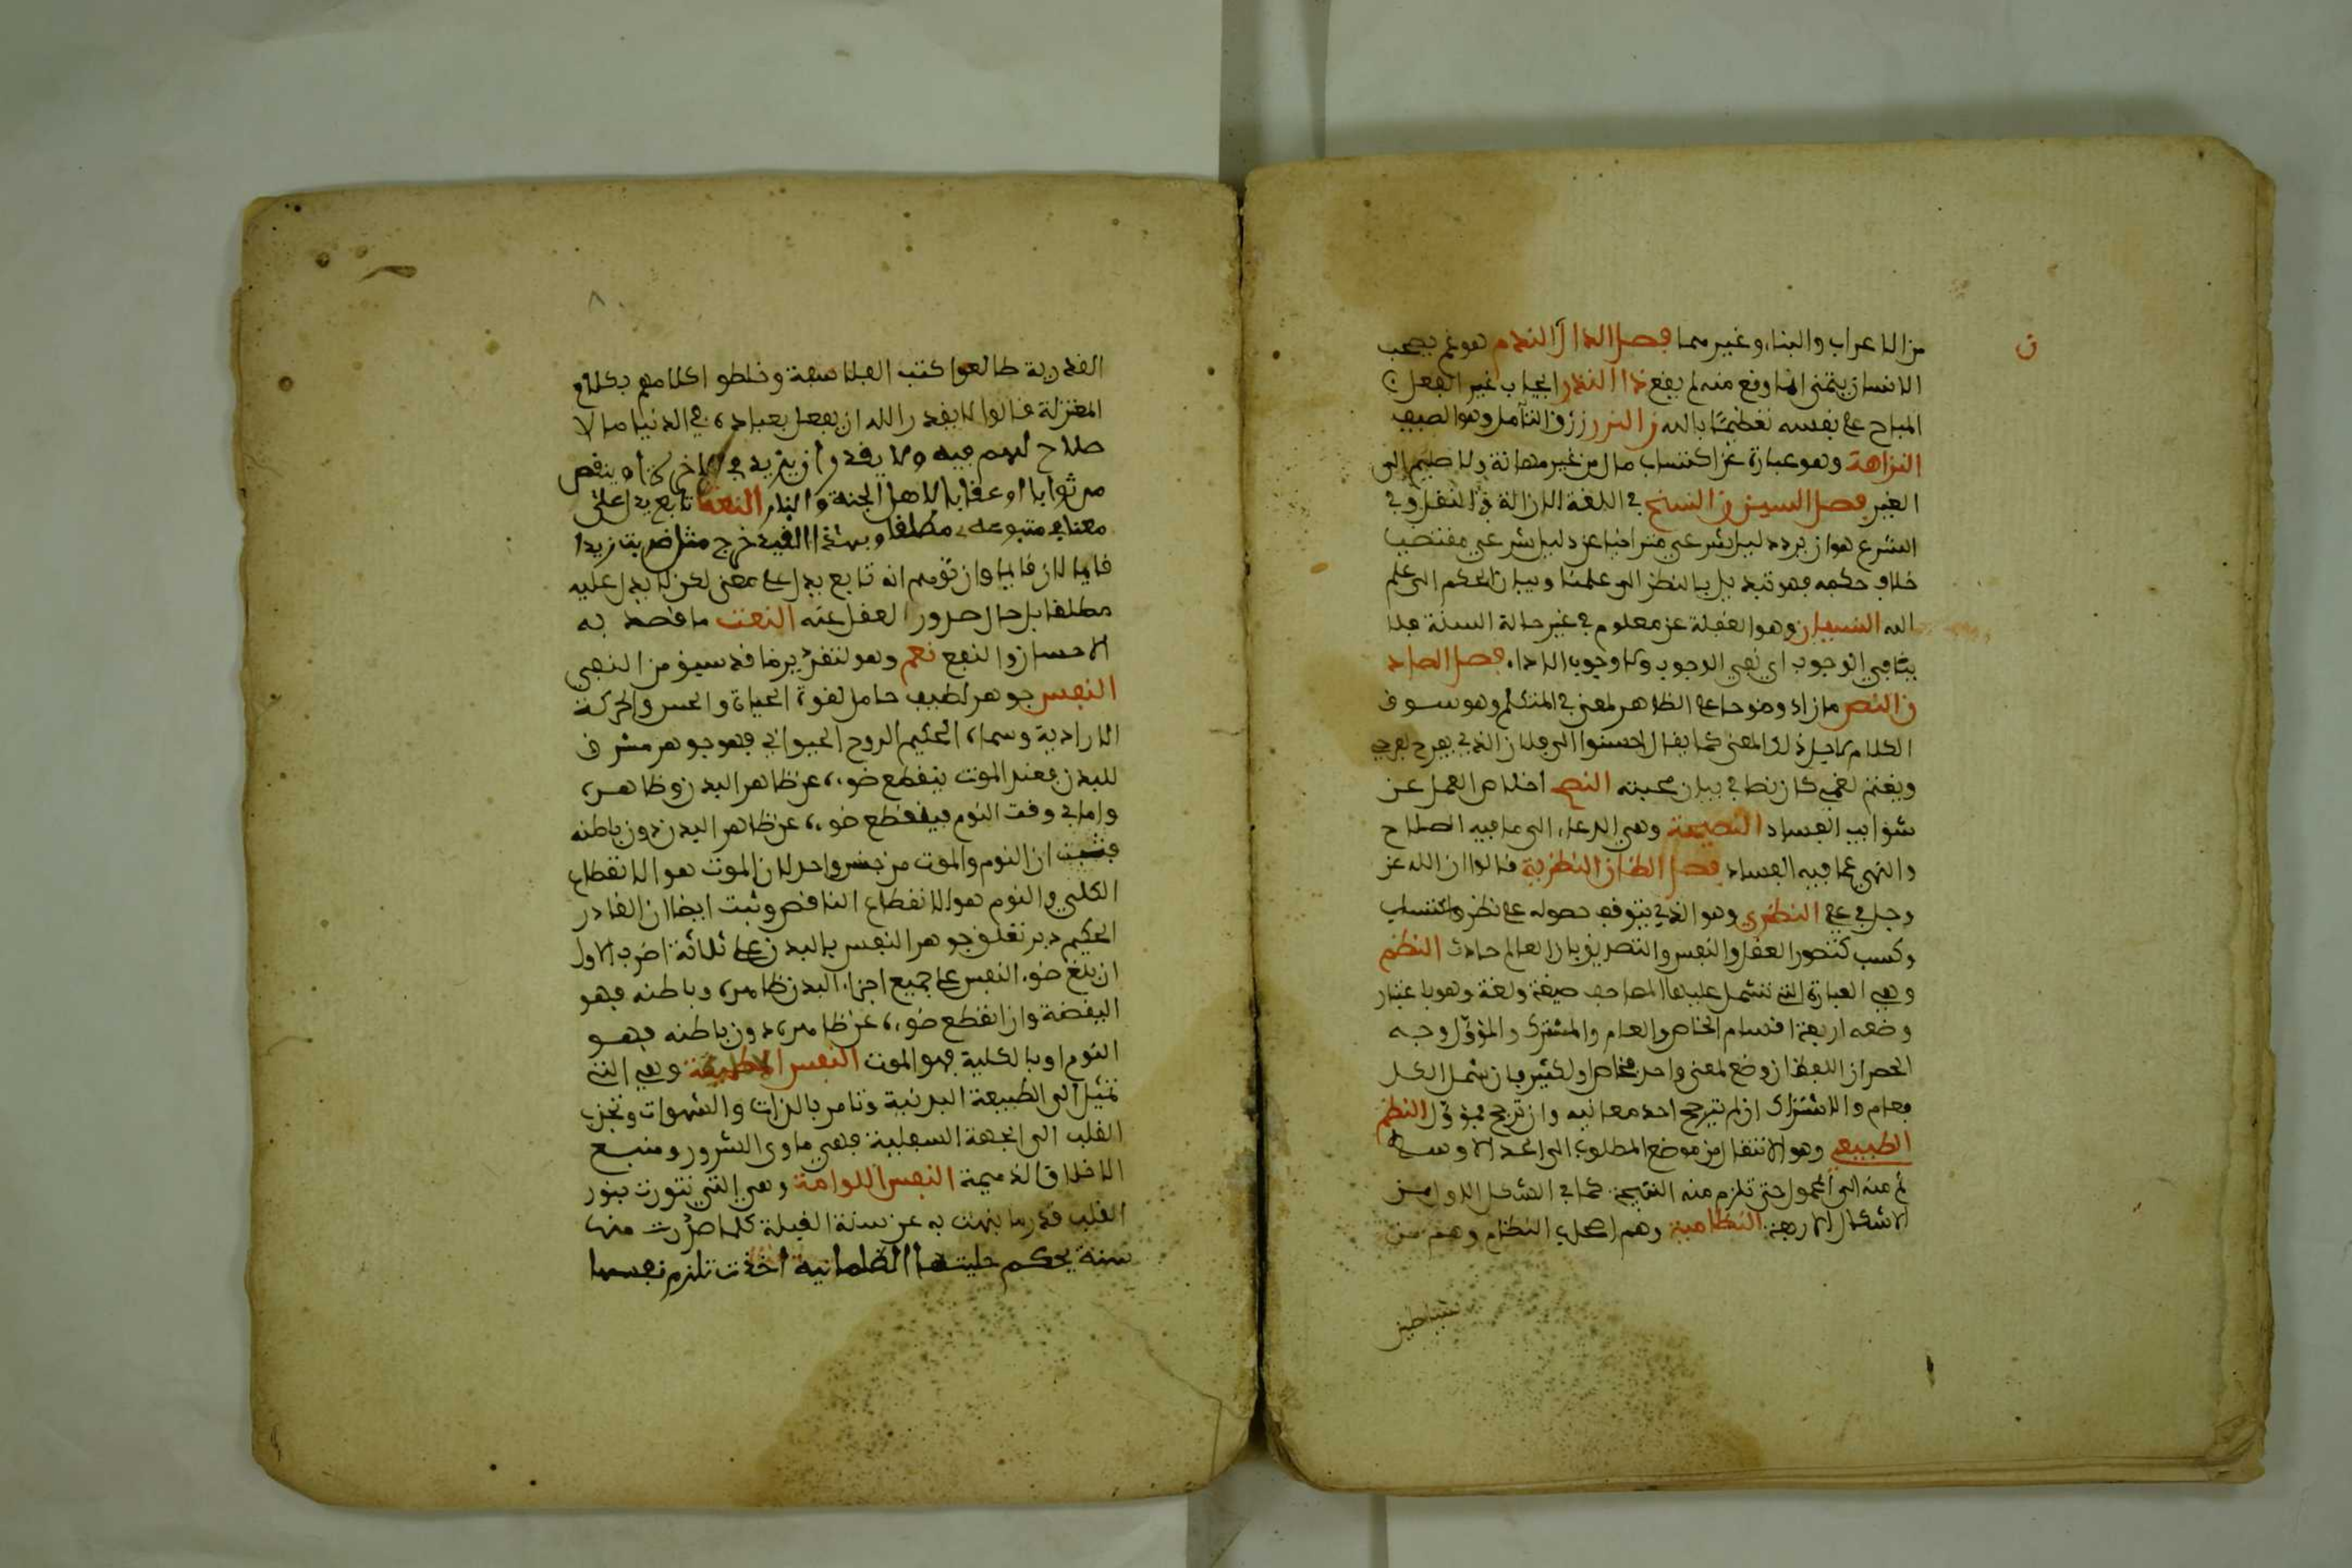 ن
من الاعراب والبناء وغيرهما فصل الدال الندم هو غم يصحب
الانسان يتمنى انما وقع منه لم يقع ذا النذر ايجاب غير الفعل
المباح على نفسه تعظيما بالله ز النزر زق التامل وهو الصيف
النزاهة وهو عبارة عن اكتساب مال من غير مهانة ولا ظلم الى
الغير فصل السين ن النسخ في اللغة الازالة والنقل وفي
الشرع هو ان يرد دليل شرعي متراخيا عن دليل شرعي مقتضيا
خلاف حكمه فهو تبديل بالنظر الى علمنا وبيان الحكم الى علم
الله النسيان وهو الغفلة عن معلوم في غير حالة السنة فلا
ينافي الوجوب اي نفي الوجوب ولا وجوب الاداء فصل الصاد
ن النص ما زاد وضوحا على الظاهر لمعنى في المتكلم وهو سوف
الكلام لاجل ذلك المعنى كما يقال احسنوا الى فلان الذي يفرح بفرحي
ويغتم لغمي كان نصا في بيان محبته النصح اخلاص العمل عن
شوايب الفساد النصيحة وهي الدعاء الى ما فيه الصلاح
والنهي عما فيه الفساد فصل الظا ن النظرية قالوا ان الله عز
وجل في على النظري وهو الذي يتوقف حصوله على نظر واكتساب
وكسب كتصور العقل والنفس والتصديق بان العالم حادث النظم
وهي العبارة التي تشتمل عليها المصاحف صيغة ولغة وهو باعتبار
وضعه اربعة اقسام الخاص والعام والمشترك والمؤول وجه
الحصر ان اللفظ ان وضع لمعنى واحد فخاص او لكثير فان شمل الكل
فعام والاشتراك ان لم يترجح احد معانيه وان ترجح فمؤول النظم
الطبيعي وهو الانتقال من موضع المطلوب الى الحد الاوسط
ثم منه الى المحمول حتى تلزم منه النتيجة كما في الشكل الاول من
الاشكال الاربعة النظامية وهم اصحاب النظام وهم من
شياطين
٨
القدرية طالعوا كتب الفلاسفة وخلطوا كلامهم بكلام
المعتزلة قالوا لا يقدر الله ان يفعل بعباده في الدنيا ما لا
صلاح لهم فيه ولا يقدر ان يزيد في الاخرة او ينقص
من ثوابا او عقابا لاهل الجنة والنار النعت تابع يدل على
معنى في متبوعه مطلقا وبهذا القيد خرج مثل ضربت زيدا
قايما لان قايما وان توهم انه تابع يدل على معنى لكن لا يدل عليه
مطلقا بل حال صدور الفعل عنه النعت ما قصد به
الاحسان والنفع نعم وهو لتقرير ما قد سبق من النفي
النفس جوهر لطيف حامل لقوة الحياة والحس والحركة
الارادية وسماه الحكيم الروح الحيواني فهو جوهر مشرف
للبدن فعند الموت ينقطع ضوءه عن ظاهر البدن وظاهره
واما في وقت النوم فينقطع ضوءه عن ظاهر البدن دون باطنه
فثبت ان النوم والموت من جنس واحد لان الموت هو الانقطاع
الكلي والنوم هو الانقطاع الناقص وثبت ايضا ان القادر
الحكيم دبر تعلق جوهر النفس بالبدن على ثلاثة اضرب الاول
ان بلغ ضوء النفس على جميع اجزاء البدن ظاهره وباطنه فهو
اليقضة وان انقطع ضوءه عن ظاهره دون باطنه فهو
النوم او بالكلية فهو الموت النفس وهي التي
تميل الى الطبيعة البدنية وتامر بالذات والشهوات وتجذب
القلب الى الجهة السفلية فهي ماوى الشرور ومنبع
الاخلاق الذميمة النفس اللوامة وهي التي تنورت بنور
القلب قدر ما نبهت به عن سنة الغفلة كلما صدرت منها
سئة يحكم جليتها الظلمانية اخذت تلزم نفسها